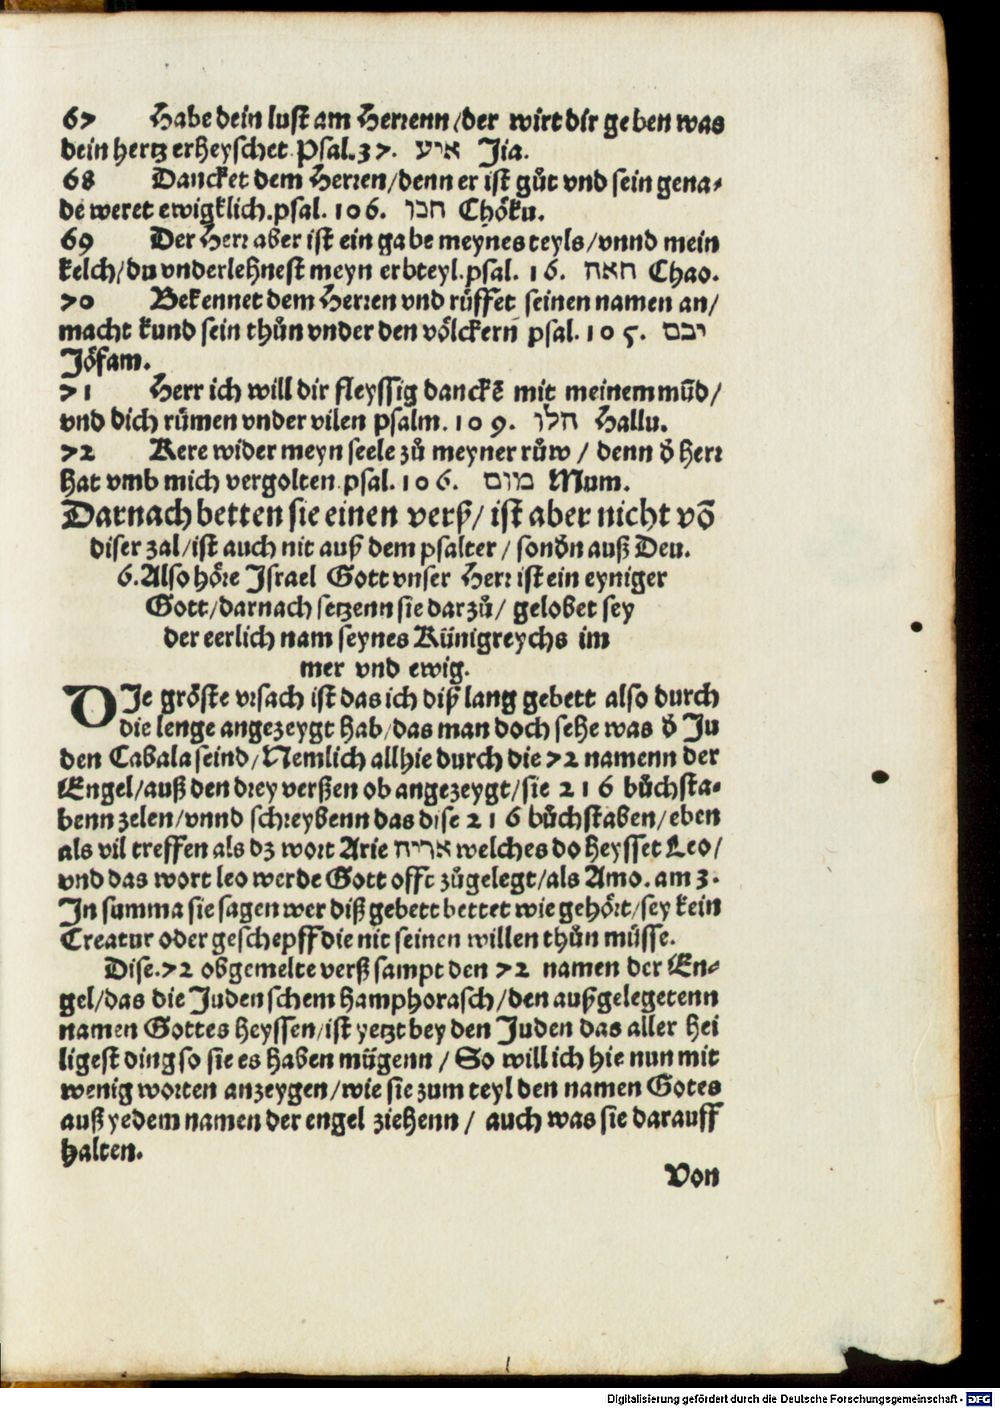 67 Habe dein lust am Herrenn/der wirt dir geben was
dein hertz erheyschet. Psal.37. איע Jia.
68 Dancket dem Herren/denn er ist gůt vnd sein gena⸗
de weret ewigklich.psal. 106. חבו Chöku.
69 Der Herr aber ist ein gabe meynes teyls/vnnd mein
kelch/du vnderlehnest meyn erbteyl.psal. 16. חאה Chao.
70 Bekennet dem Herren vnd růffet seinen namen an/
macht kund sein thůn vnder den völckern psal. 105. יבם
Jöfam.
71 Herr ich will dir fleyssig danckē mit meinem mūd/
vnd dich rümen vnder vilen psalm. 109. חלו Hallu.
72 Kere wider meyn seele zů meyner růw / denn ð herr
hat vmb mich vergolten psal. 106. מום Mum.
Darnach betten sie einen verß/ ist aber nicht vō
diser zal/ist auch nit auß dem psalter / sonðn auß Deu.
6. Also höre Israel Gott vnser Herr ist ein eyniger
Gott/darnach setzenn sie darzů/ gelobet sey
der eerlich nam seynes Künigreychs im
mer vnd ewig.
DJe gröste vrsach ist das ich diß lang gebett also durch
die lenge angezeygt hab/das man doch sehe was ð Ju
den Cabala seind/Nemlich allhie durch die 72 namenn der
Engel/auß den drey verßen ob angezeygt/sie 216 bůchsta⸗
benn zelen/vnnd schreybenn das dise 216 bůchstaben/eben
als vil treffen als dz wort Arie אריה welches do heysset Leo/
vnd das wort leo werde Gott offt zůgelegt/als Amo. am 3.
In summa sie sagen wer diß gebett bettet wie gehört/sey kein
Creatur oder geschepff die nit seinen willen thůn müsse.
Dise.72 obgemelte verß sampt den 72 namen der En⸗
gel/das die Juden schem hamphorasch/den außgelegetenn
namen Gottes heyssen/ist yetzt bey den Juden das aller hei
ligest ding so sie es haben mügenn / So will ich hie nun mit
wenig worten anzeygen/wie sie zum teyl den namen Gotes
auß yedem namen der engel ziehenn / auch was sie darauff
halten.
Von
Digitalisierung gefördert durch die Deutsche Forschungsgemeinschaft - DFG